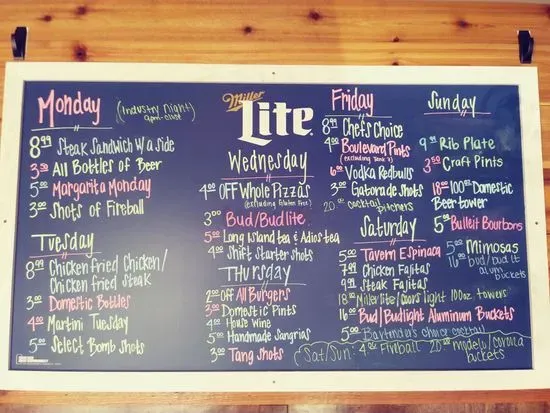 Monday
(Industry Night)
9pm-close
8.99 Steak Sandwich w/ a side
3.50 All Bottles of Beer
5.00 Margarita Monday
3.00 Shots of Fireball
Tuesday
8.99 Chicken fried Chicken/
Chicken fried steak
3.00 Domestic Bottles
4.00 Martini Tuesday
5.00 Select Bomb shots
Miller
Lite
Wednesday
4.00 OFF Whole Pizzas
(excluding Gluten Free)
3.00 Bud/Budlite
5.00 Long Island tea & Adios tea
4.00 Shift starter shots
Thursday
2.00 OFF All Burgers
3.00 Domestic Pints
4.00 House Wine
5.00 Handmade Sangrias
3.00 Tang shots
Friday
8.99 Chefs Choice
4.00 Boulevard Pints
(excluding Tank 7)
6.00 Vodka Redbulls
3.00 Gatorade shots
20.00 cocktail pitchers
Saturday
5.00 Tavern Espinaca
7.99 Chicken Fajitas
9.99 Steak Fajitas
18.00 Miller lite/coors light 100oz. towers
16.00 Bud/Budlight Aluminum Buckets
5.00 Bartender's choice cocktail
Sunday
9.99 Rib Plate
3.50 Craft Pints
18.00 100oz Domestic
Beer tower
5.00 Bulleit Bourbons
5.00 Mimosas
16.00 bud/bud lt
alum
buckets
Sat/Sun: 4.00 Fireball 20.00 modelo/corona
buckets